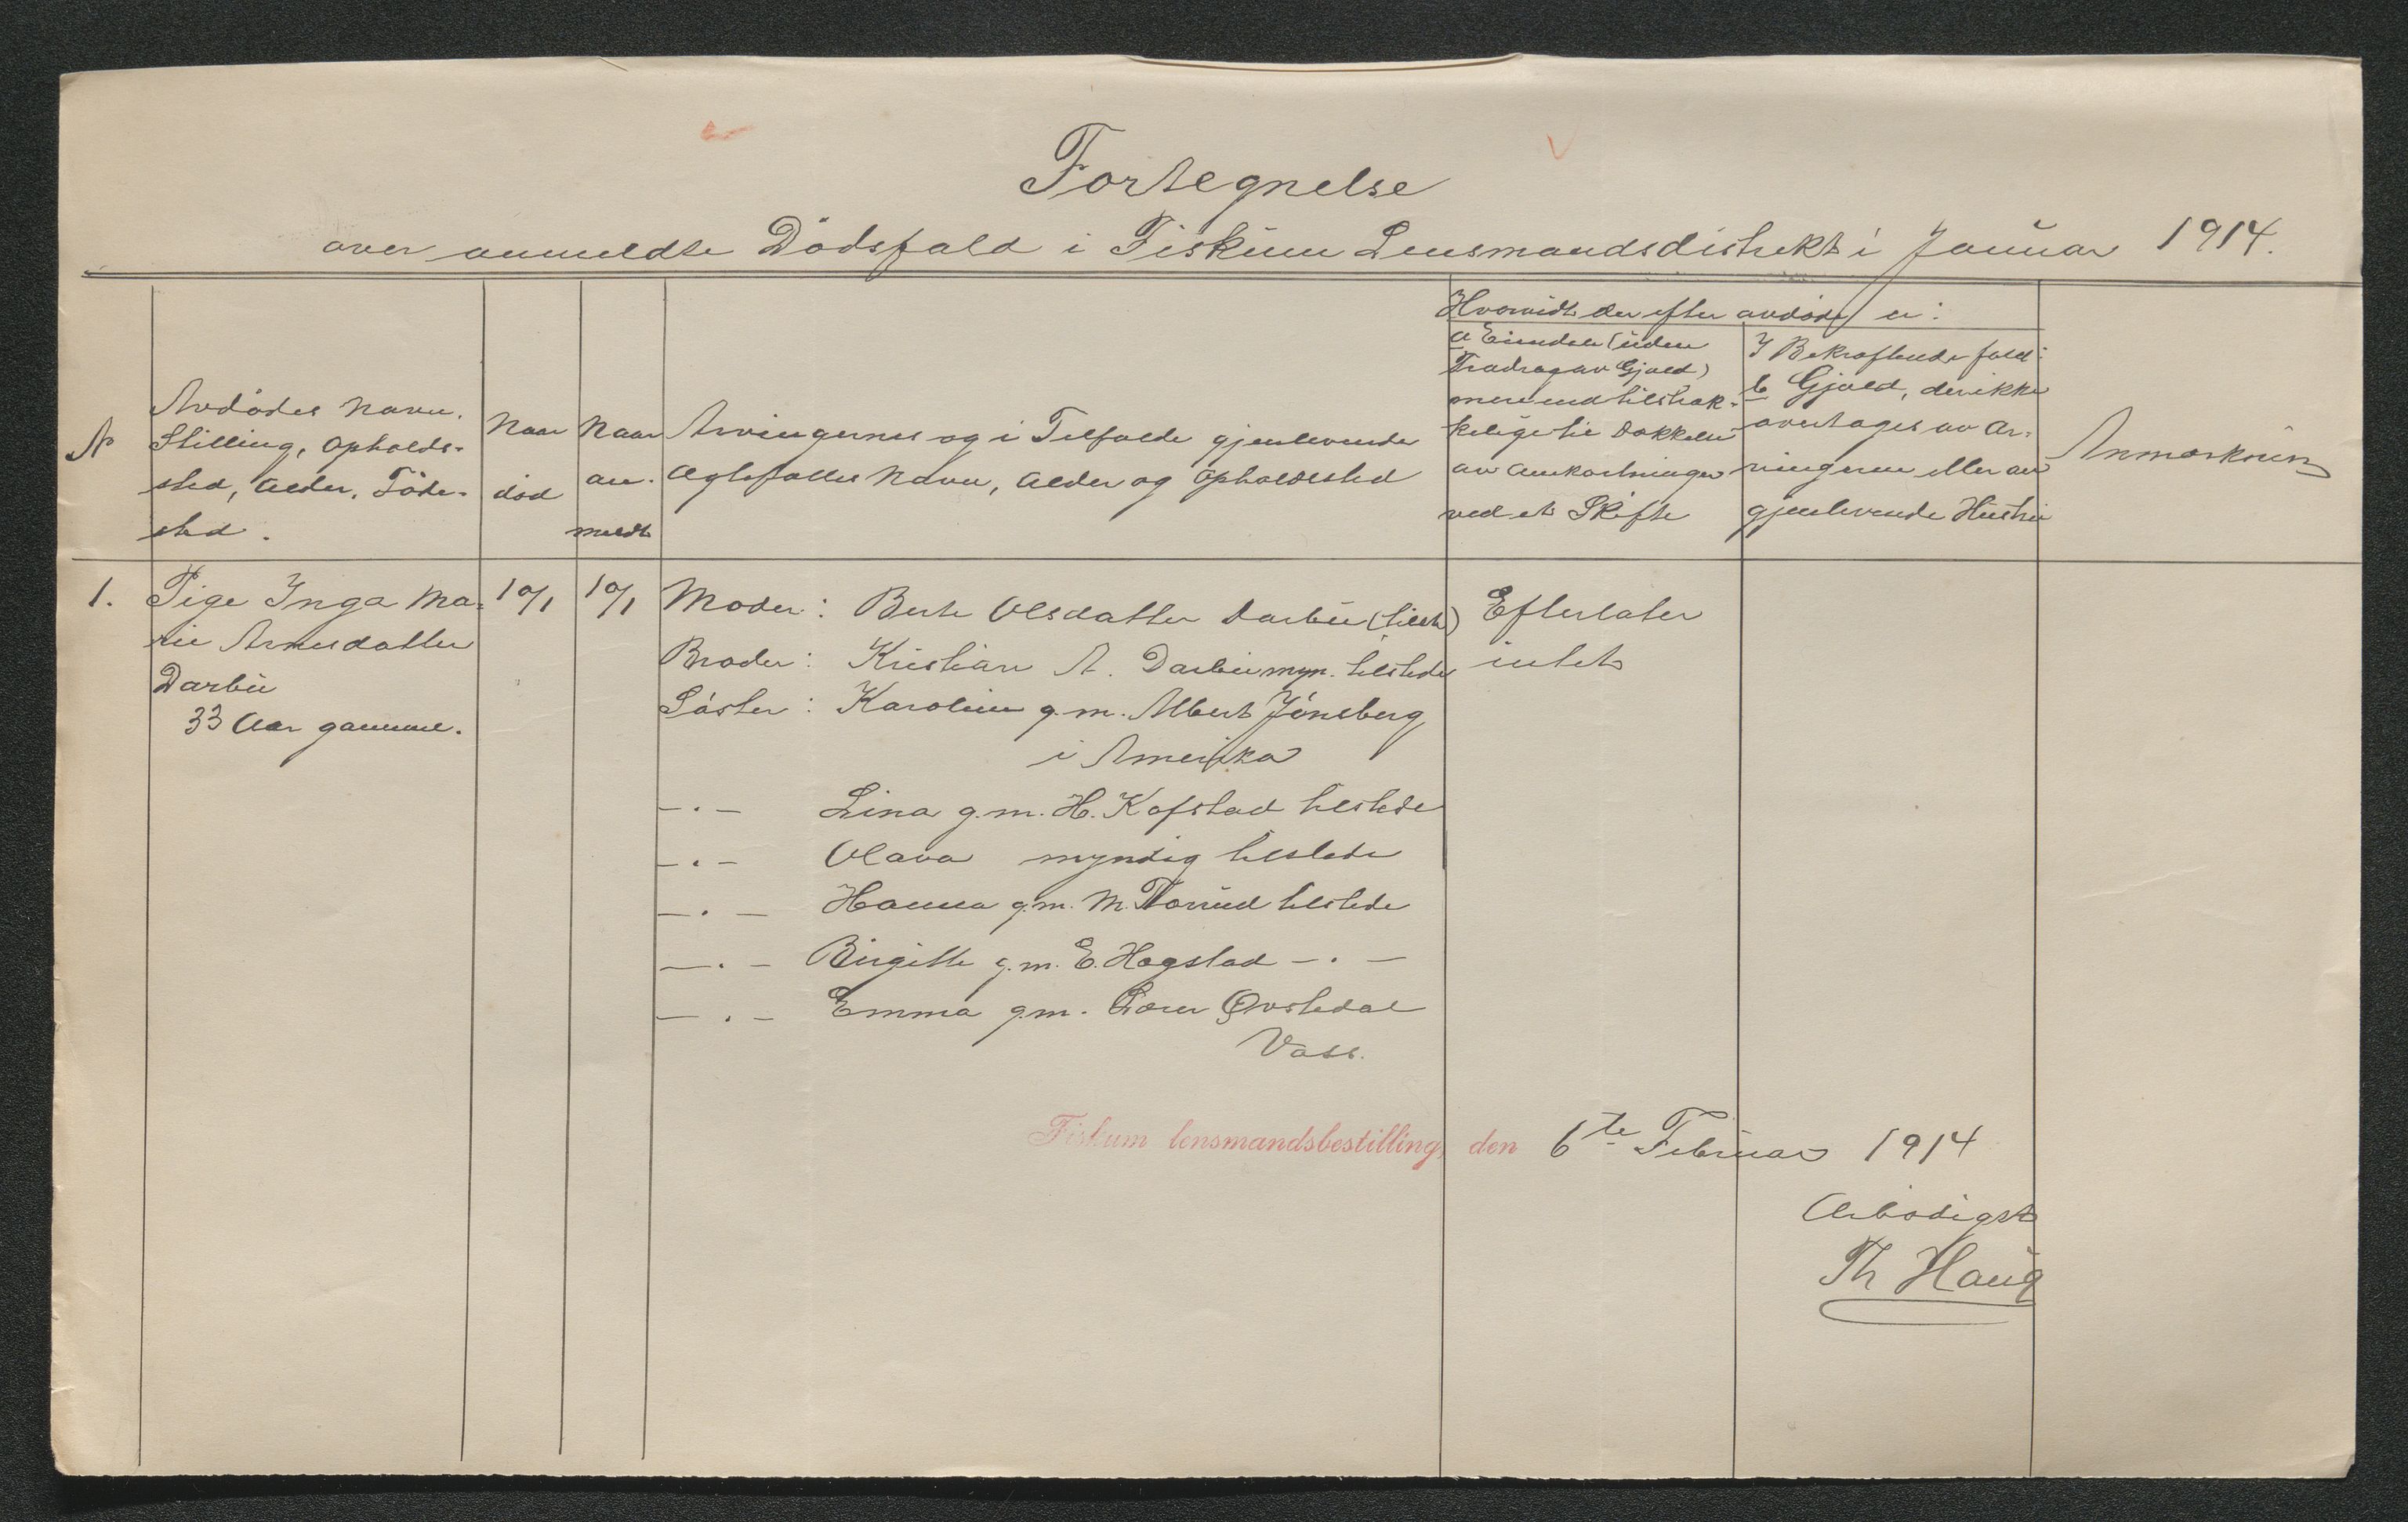 Fortegnelse
over anmeldte Dödsfald i Fiskum Lensmandsdistrikt i Januar 1914.
N
Avdödes Navn,
Stilling, Opholds-
sted, Alder, Föde-
sted.
Naar
död
Naar
an-
meldt
Arvingernes og i Tilfælde gjenlevende
Ægtefælles Navn, Alder og Opholdssted
Hvorvidt der efter avdøde er:
a Eiendele (uden
Fradrag av Gjæld)
mere end tilstræk-
kelige til Dækkelse
av Omkostninger
ved et Skifte
I Bekræftende fald:
b Gjæld, der ikke
overtages av Ar-
vingerne eller av
gjenlevende Hustru
Anmærkning
1.
Pige Inga Ma-
rie Arnesdatter
Darbu
33 Aar gammel.
10/1
10/1
Moder: Berte Olsdatter Darbu (tilst)
Broder: Kristian A. Darbu myn. tilstede
Söster: Karoline g.m. Albert Jönsberg
i Amerika
-.- Lina g.m. H. Kofstad tilstede
-.- Olava myndig tilstede
-.- Hanna g.m. M. tilstede
-.- Birgitte g.m. E. Hogstad -.-
-.- Emma g.m. Øvstedal
Voss.
Efterlater
intet
Fiskum lensmandsbestilling, den 6te Februar 1914
Ærbødigst
Th Haug